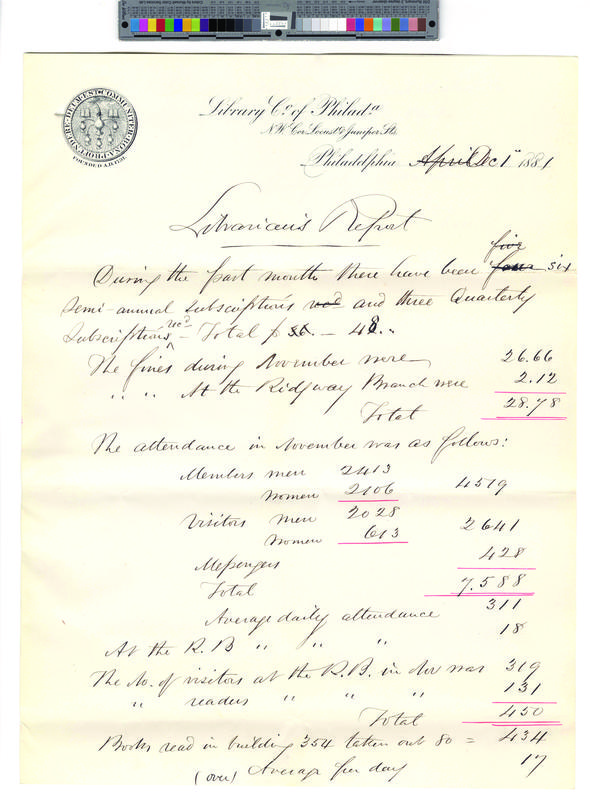 COMMUNITER BONA PROFUNDERE DEUM EST
FOUNDED A.D. 1731.
Library Co. of Philada.
N.W. Cor. Locust & Juniper Sts.
Philadelphia April Dec 1st 1881
Librarian's Report
five
During the past month there have been four six
semi-annual subscriptions recd and three Quarterly
recd
Subscriptions – Total $ – 48. "
The fines during November were 26.66
" " At the Ridgway Branch were 2.12
Total 28.78
The attendance in November was as follows:
Members men 2413
women 2106 4519
Visitors men 2028
women 613 2641
Messengers 428
Total 7.588
Average daily attendance 311
At the R.B " " " 18
The No. of visitors at the R.B. in Nov was 319
" readers " " " 131
Total 450
Books read in building 354 taken out 80 = 434
(over) Average per day 17